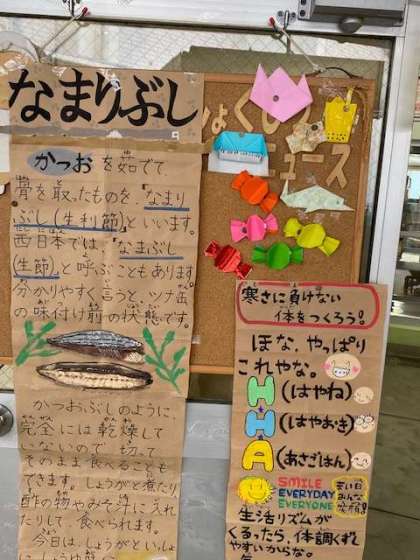 なまりぶし
かつおを茹でて
骨を取ったものを、「なまり
ぶし(生利節)といいます。
西日本では「なまぶし
(生節)と呼ぶこともあります
分かりやすく言うと、ツナ缶
の味付け前の状態です。
かつおぶしのように
完全には乾燥して
いないので切って
そのまま食べることも
できます。しょうがと煮たり
酢の物やみそ汁に入れ
たりして、食べられます。
今日はしょうがといっしょ
ニュース
寒さに負けない
体をつくろう!
ほな、やっぱり
これやな。
H(はやね)
H(はやおき)
A(あさごはん)
SMILE
EVERYDAY
EVERYONE
生活リズムが
くるったら、体調くずし
やすいからな。